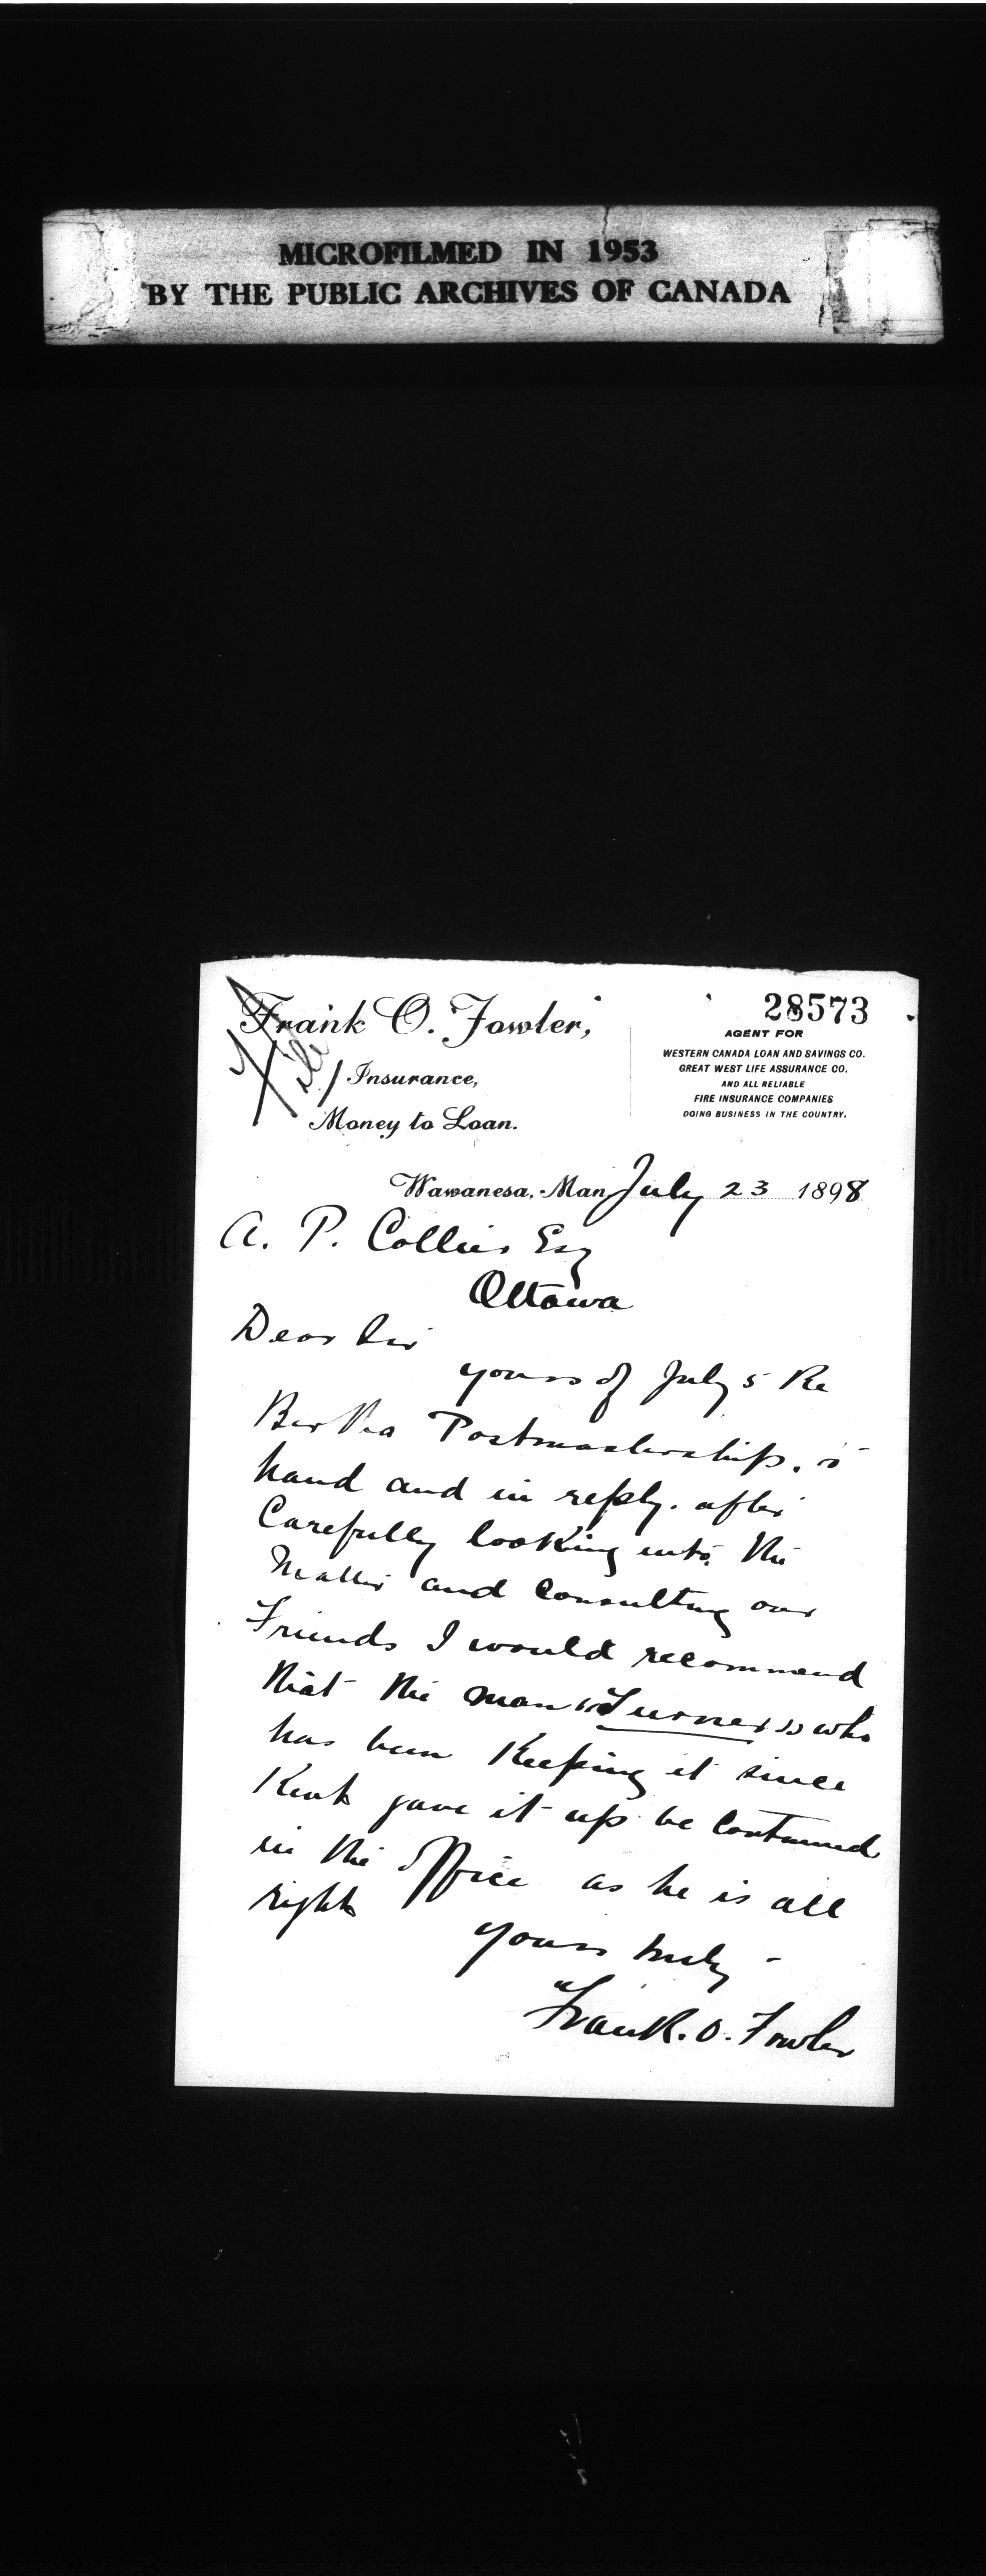 MICROFILMED IN 1953
BY THE PUBLIC ARCHIVES OF CANADA
28573
Frank O. Fowler,
Insurance,
Money to Loan.
File
AGENT FOR
WESTERN CANADA LOAN AND SAVINGS CO.
GREAT WEST LIFE ASSURANCE CO.
AND ALL RELIABLE
FIRE INSURANCE COMPANIES
DOING BUSINESS IN THE COUNTRY.
Wawanesa, Man July 23 1898
A. P. Collier Esq
Ottawa
Dear Sir
yours of July 5 Re
Postmastership. is
hand and in reply. after
Carefully looking into the
Matter and Consulting our
Friends I would recommend
that the man "Turner" who
has been Keeping it since
gave it up be Continued
in the Office as he is all
right
yours truly
Frank. O. Fowler